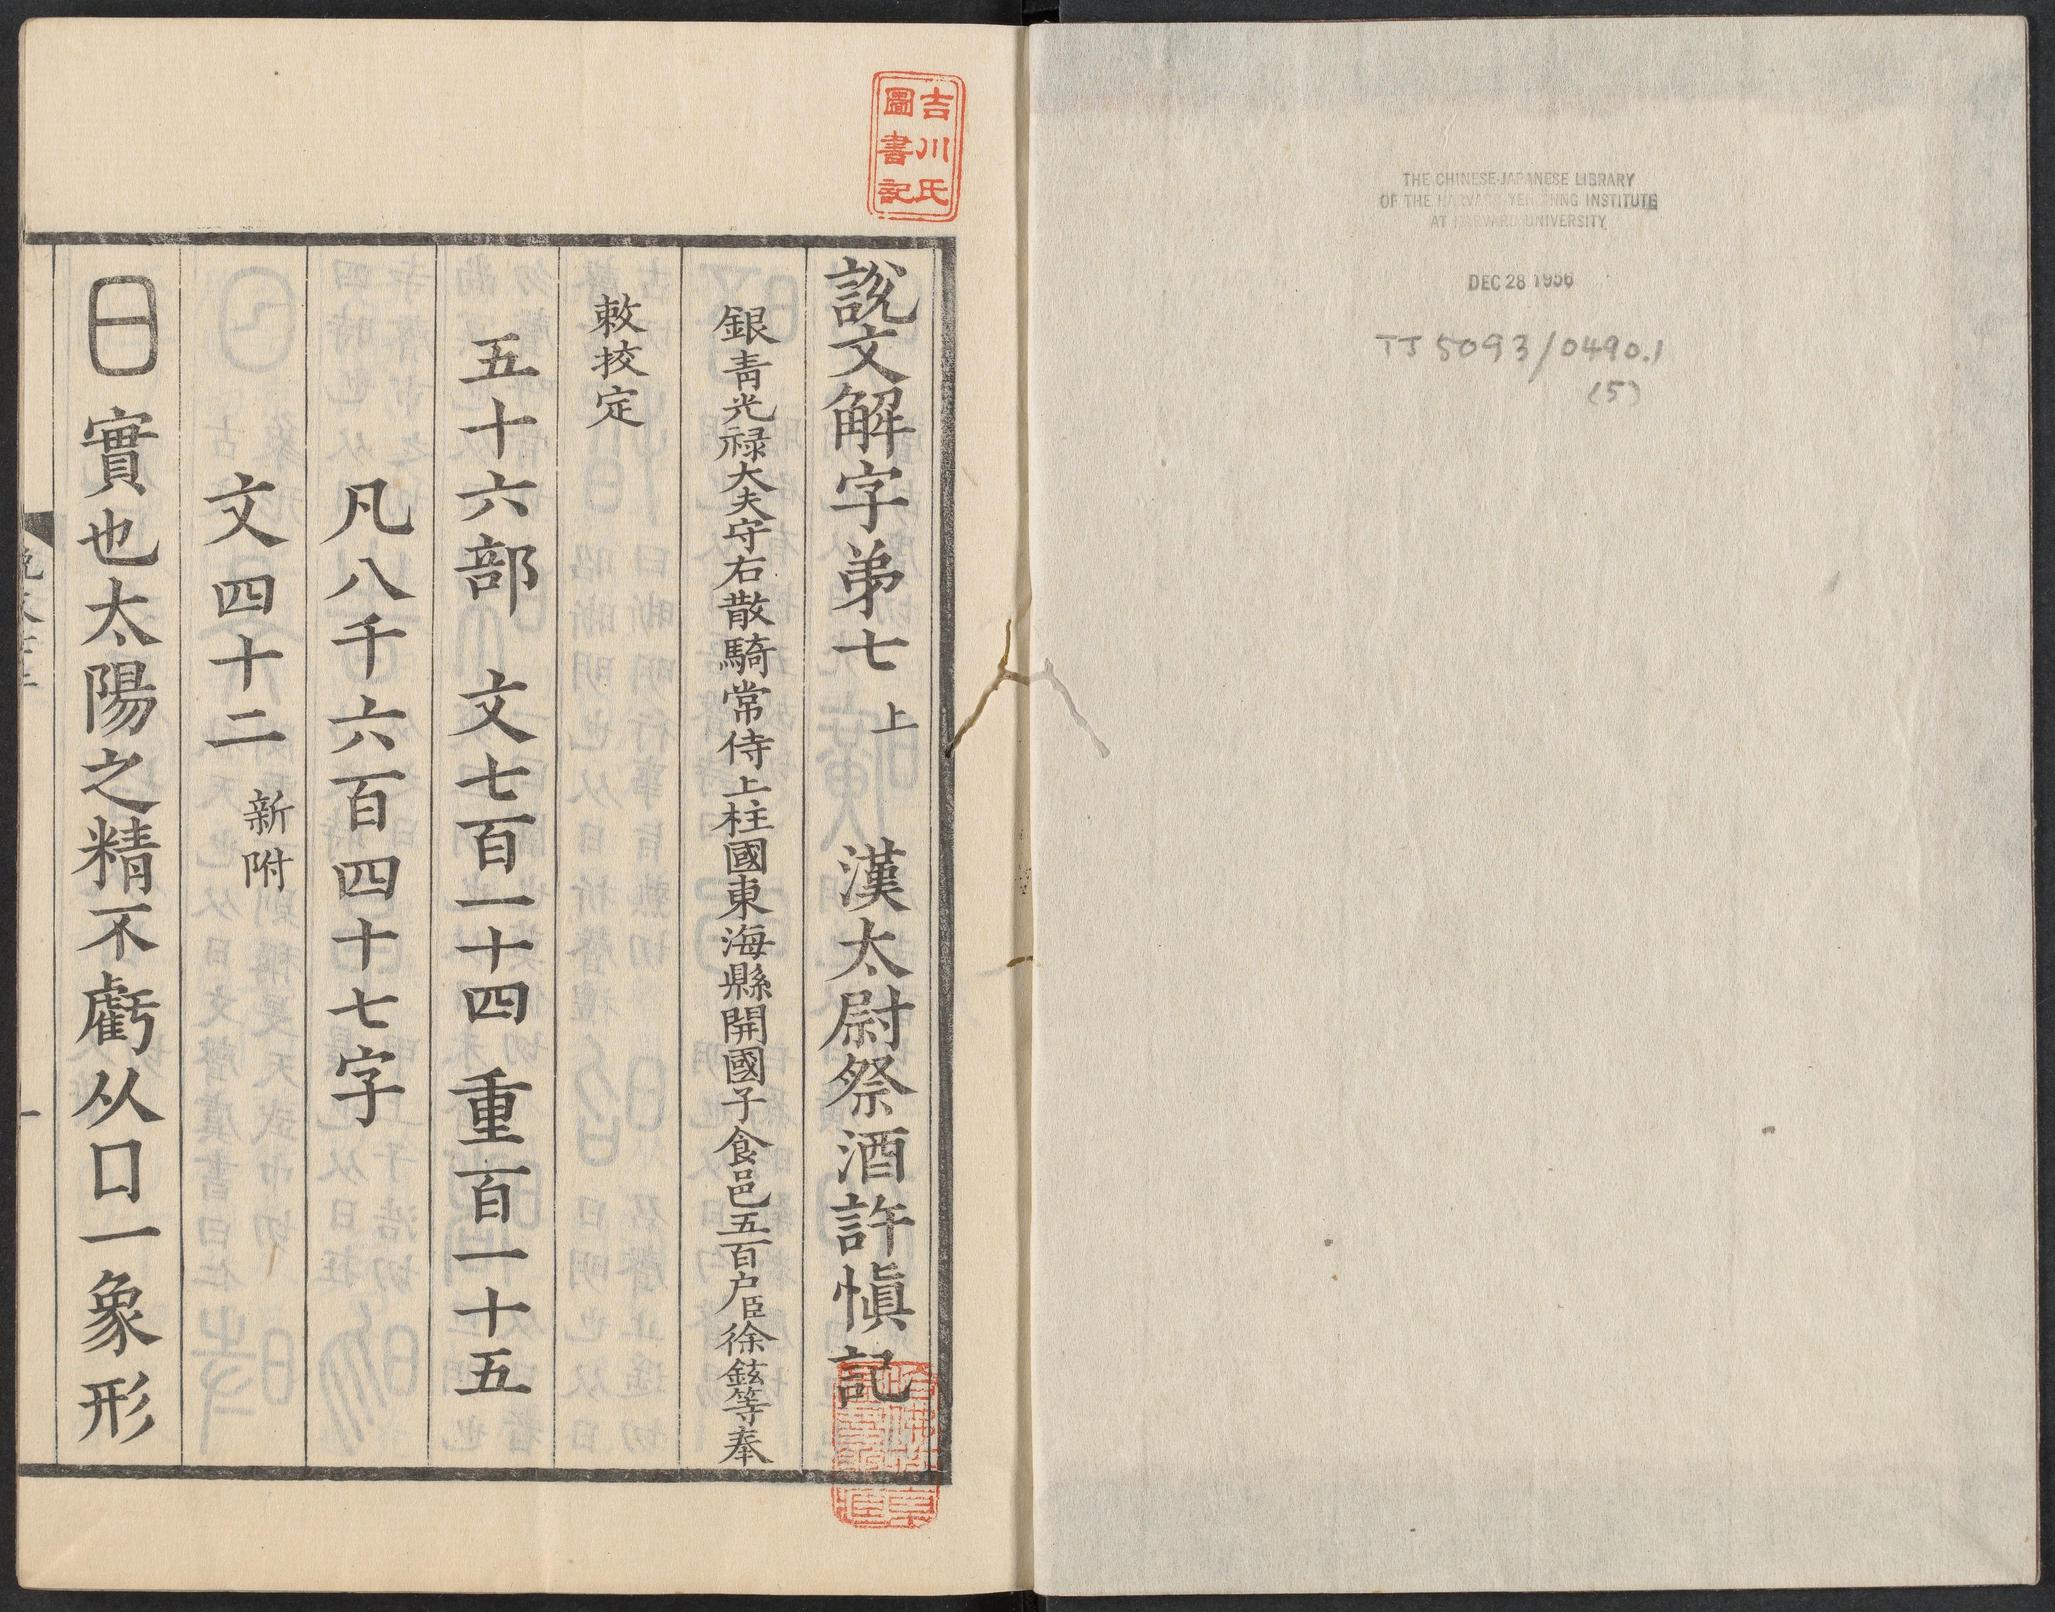 THE CHINESE-JAPANESE LIBRARY
OF THE HARVARD-YENCHING INSTITUTE
AT HARVARD UNIVERSITY
DEC 28 1956
TJ 5093/0490.1
(5)
吉川氏
圖書記
說文解字弟七上 漢太尉祭酒許愼記
銀青光禄大夫守右散騎常侍上柱國東海縣開國子食邑五百户臣徐鉉等奉
敕挍定
五十六部 文七百一十四 重百一十五
凡八千六百四十七字
文四十二新附
日 實也太陽之精不虧从口一象形